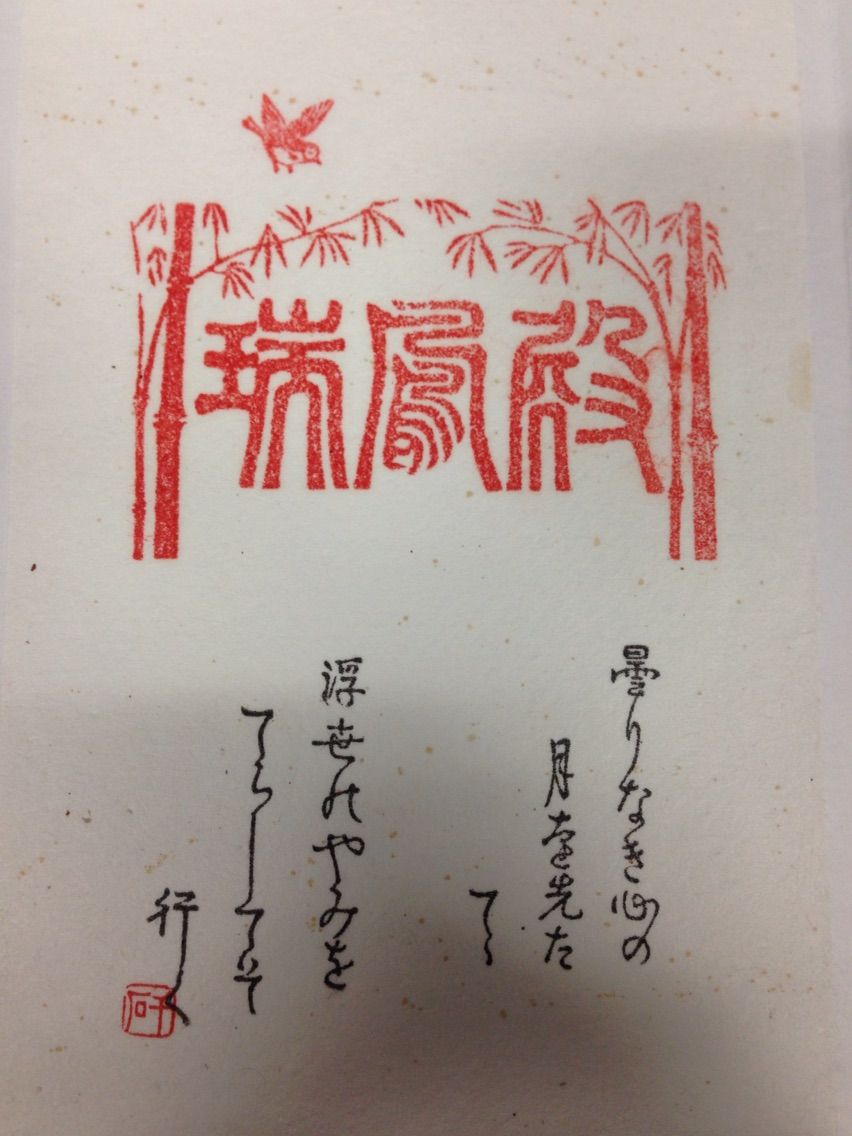 瑞鳳殿
曇りなき心の
月を先た
てゝ
浮世のやみを
てらしてそ
行く